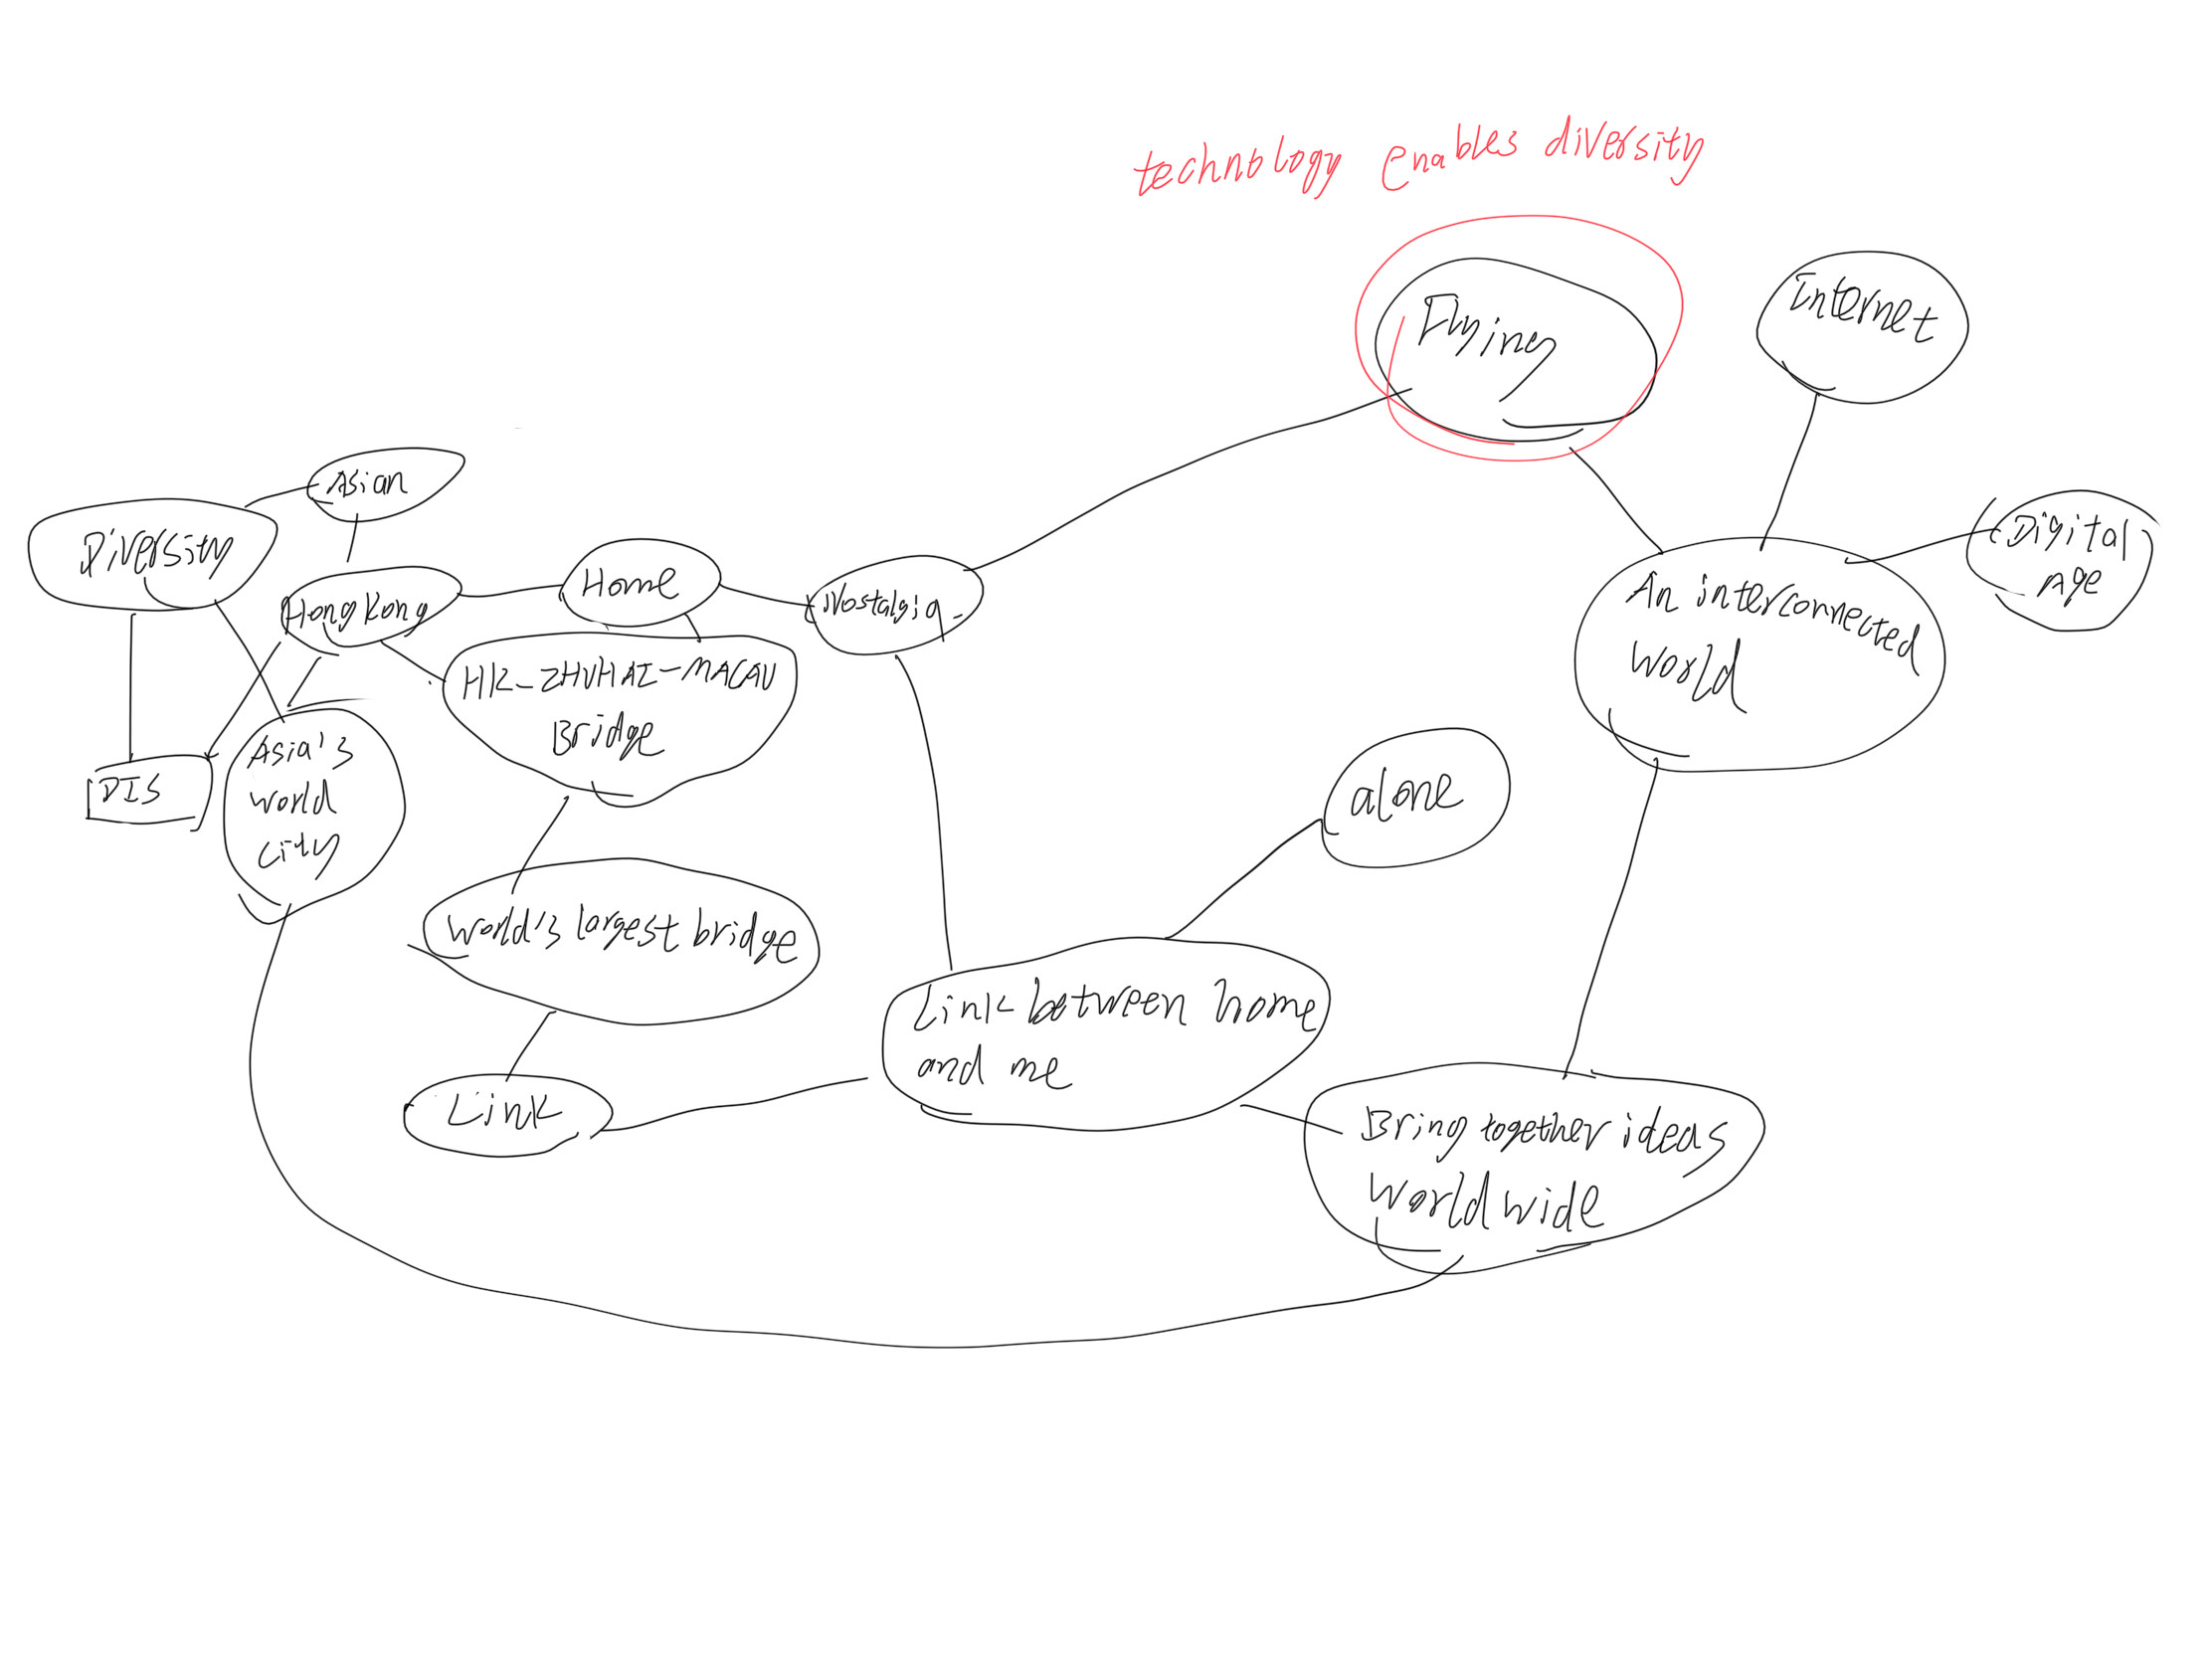 technology enables diversity
Flying
Internet
Asian
Diversity
Digital
Age
Home
Hong Kong
Nostalgia
An interconnected
world
HK-ZHUHAI-MACAU
Bridge
DIS
Asia's
world
city
alone
world's largest bridge
Link between home
and me
Link
Bring together ideas
worldwide